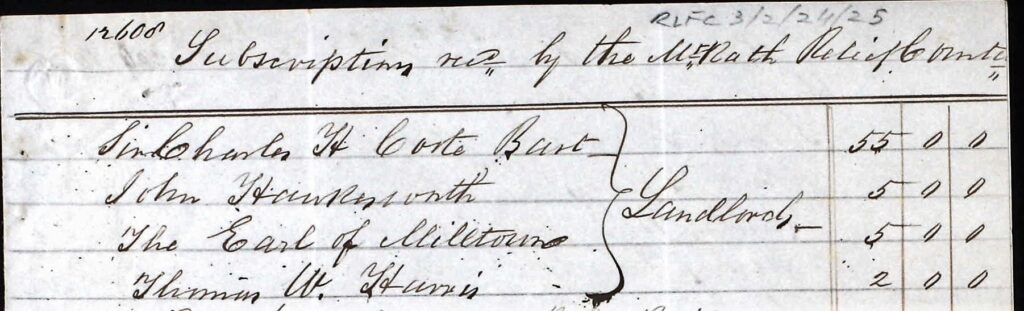 12608
RLFC 3/2/24/25
Subscriptions recd by the Mt Rath Relief Comtt
Sir Charles H Coote Bart } Landlords 55 0 0
John Hawkesworth 5 0 0
The Earl of Milltown 5 0 0
Thomas W. Harris 2 0 0